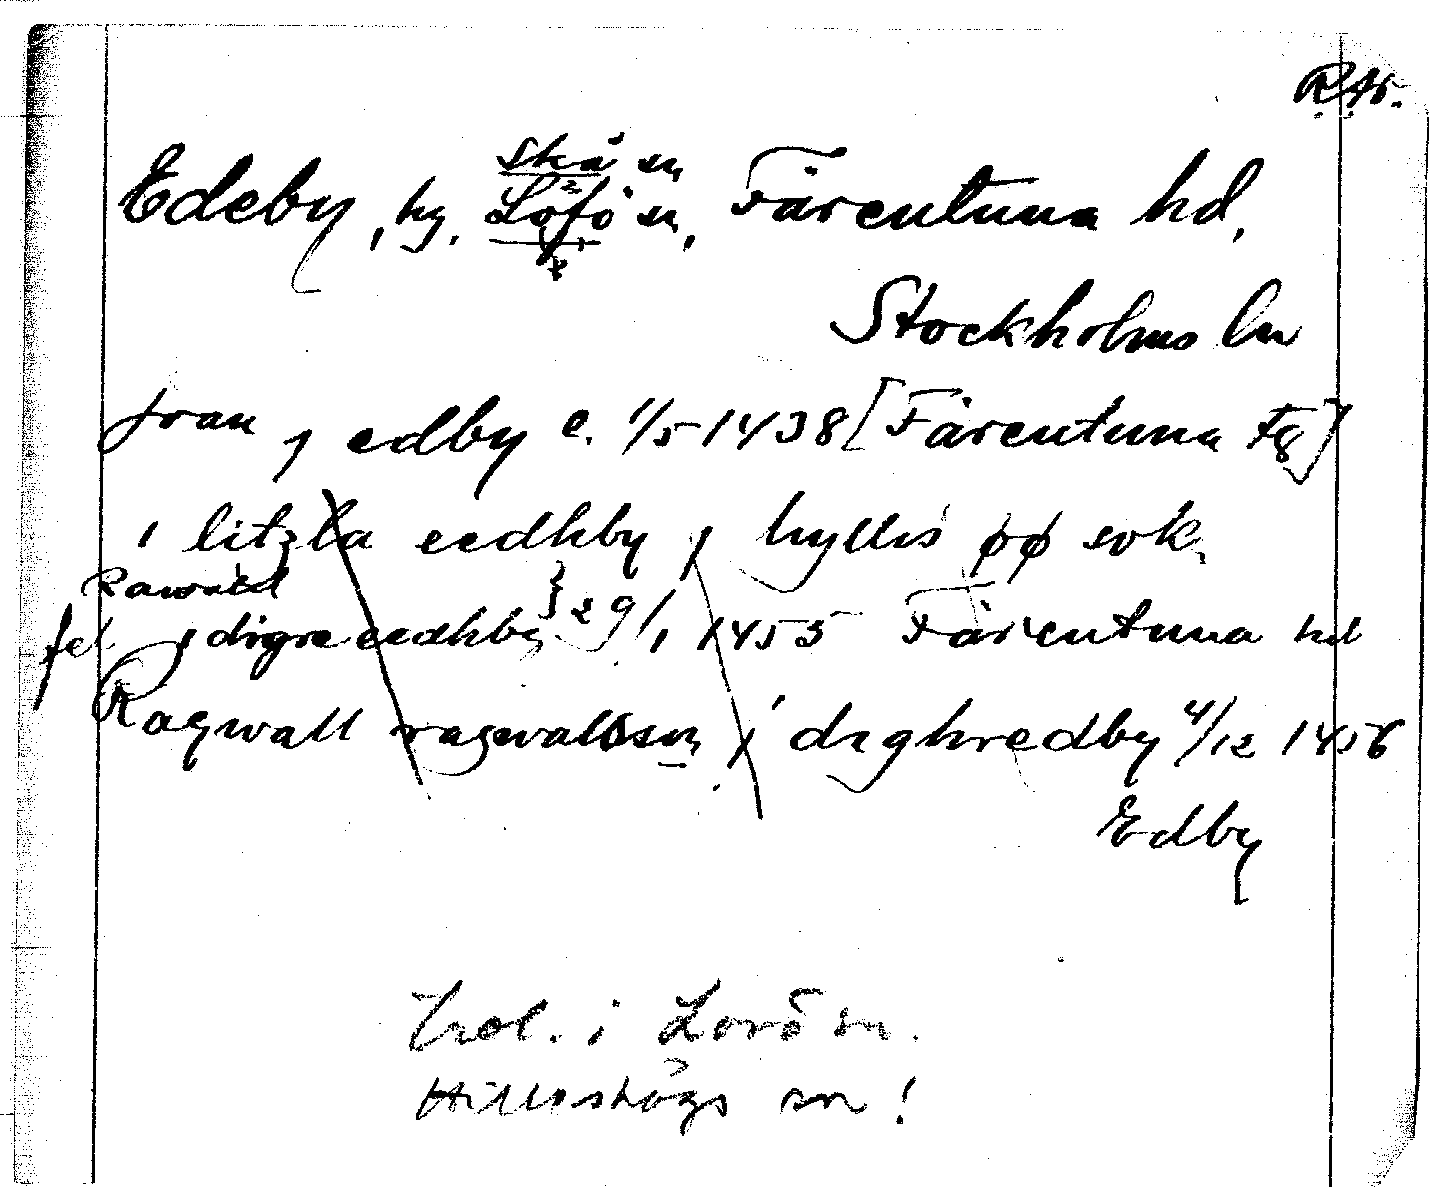 RAp.
Skå sn
Edeby, hg. Lofö sn, Färentuna hd,
Stockholms ln
fran j edby e. 1/5 1438 [Färentuna tg]
i litzla eedhby j hyllis øø sok
Rawald
fel j digre eedhby } 29/1 1455 Färentuna hd
Ragwall ragwalsson j dighredby 4/12 1456
Edby
Trol. i Lovö sn.
Hilleshögs sn!